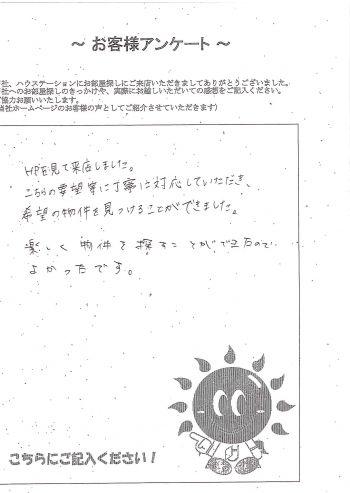 ～ お客様アンケート ～
社、ハウステーションにお部屋探しにご来店いただきましてありがとうございました。
社へのお部屋探しのきっかけや、実際にお越しいただいての感想をご記入ください。
協力お願いいたします。
当社ホームページのお客様の声としてご紹介させていただきます)
HPを見て来店しました。
こちらの要望等に丁寧に対応していただき、
希望の物件を見つけることができました。
楽しく物件を探すことができたので
よかったです。
こちらにご記入ください！